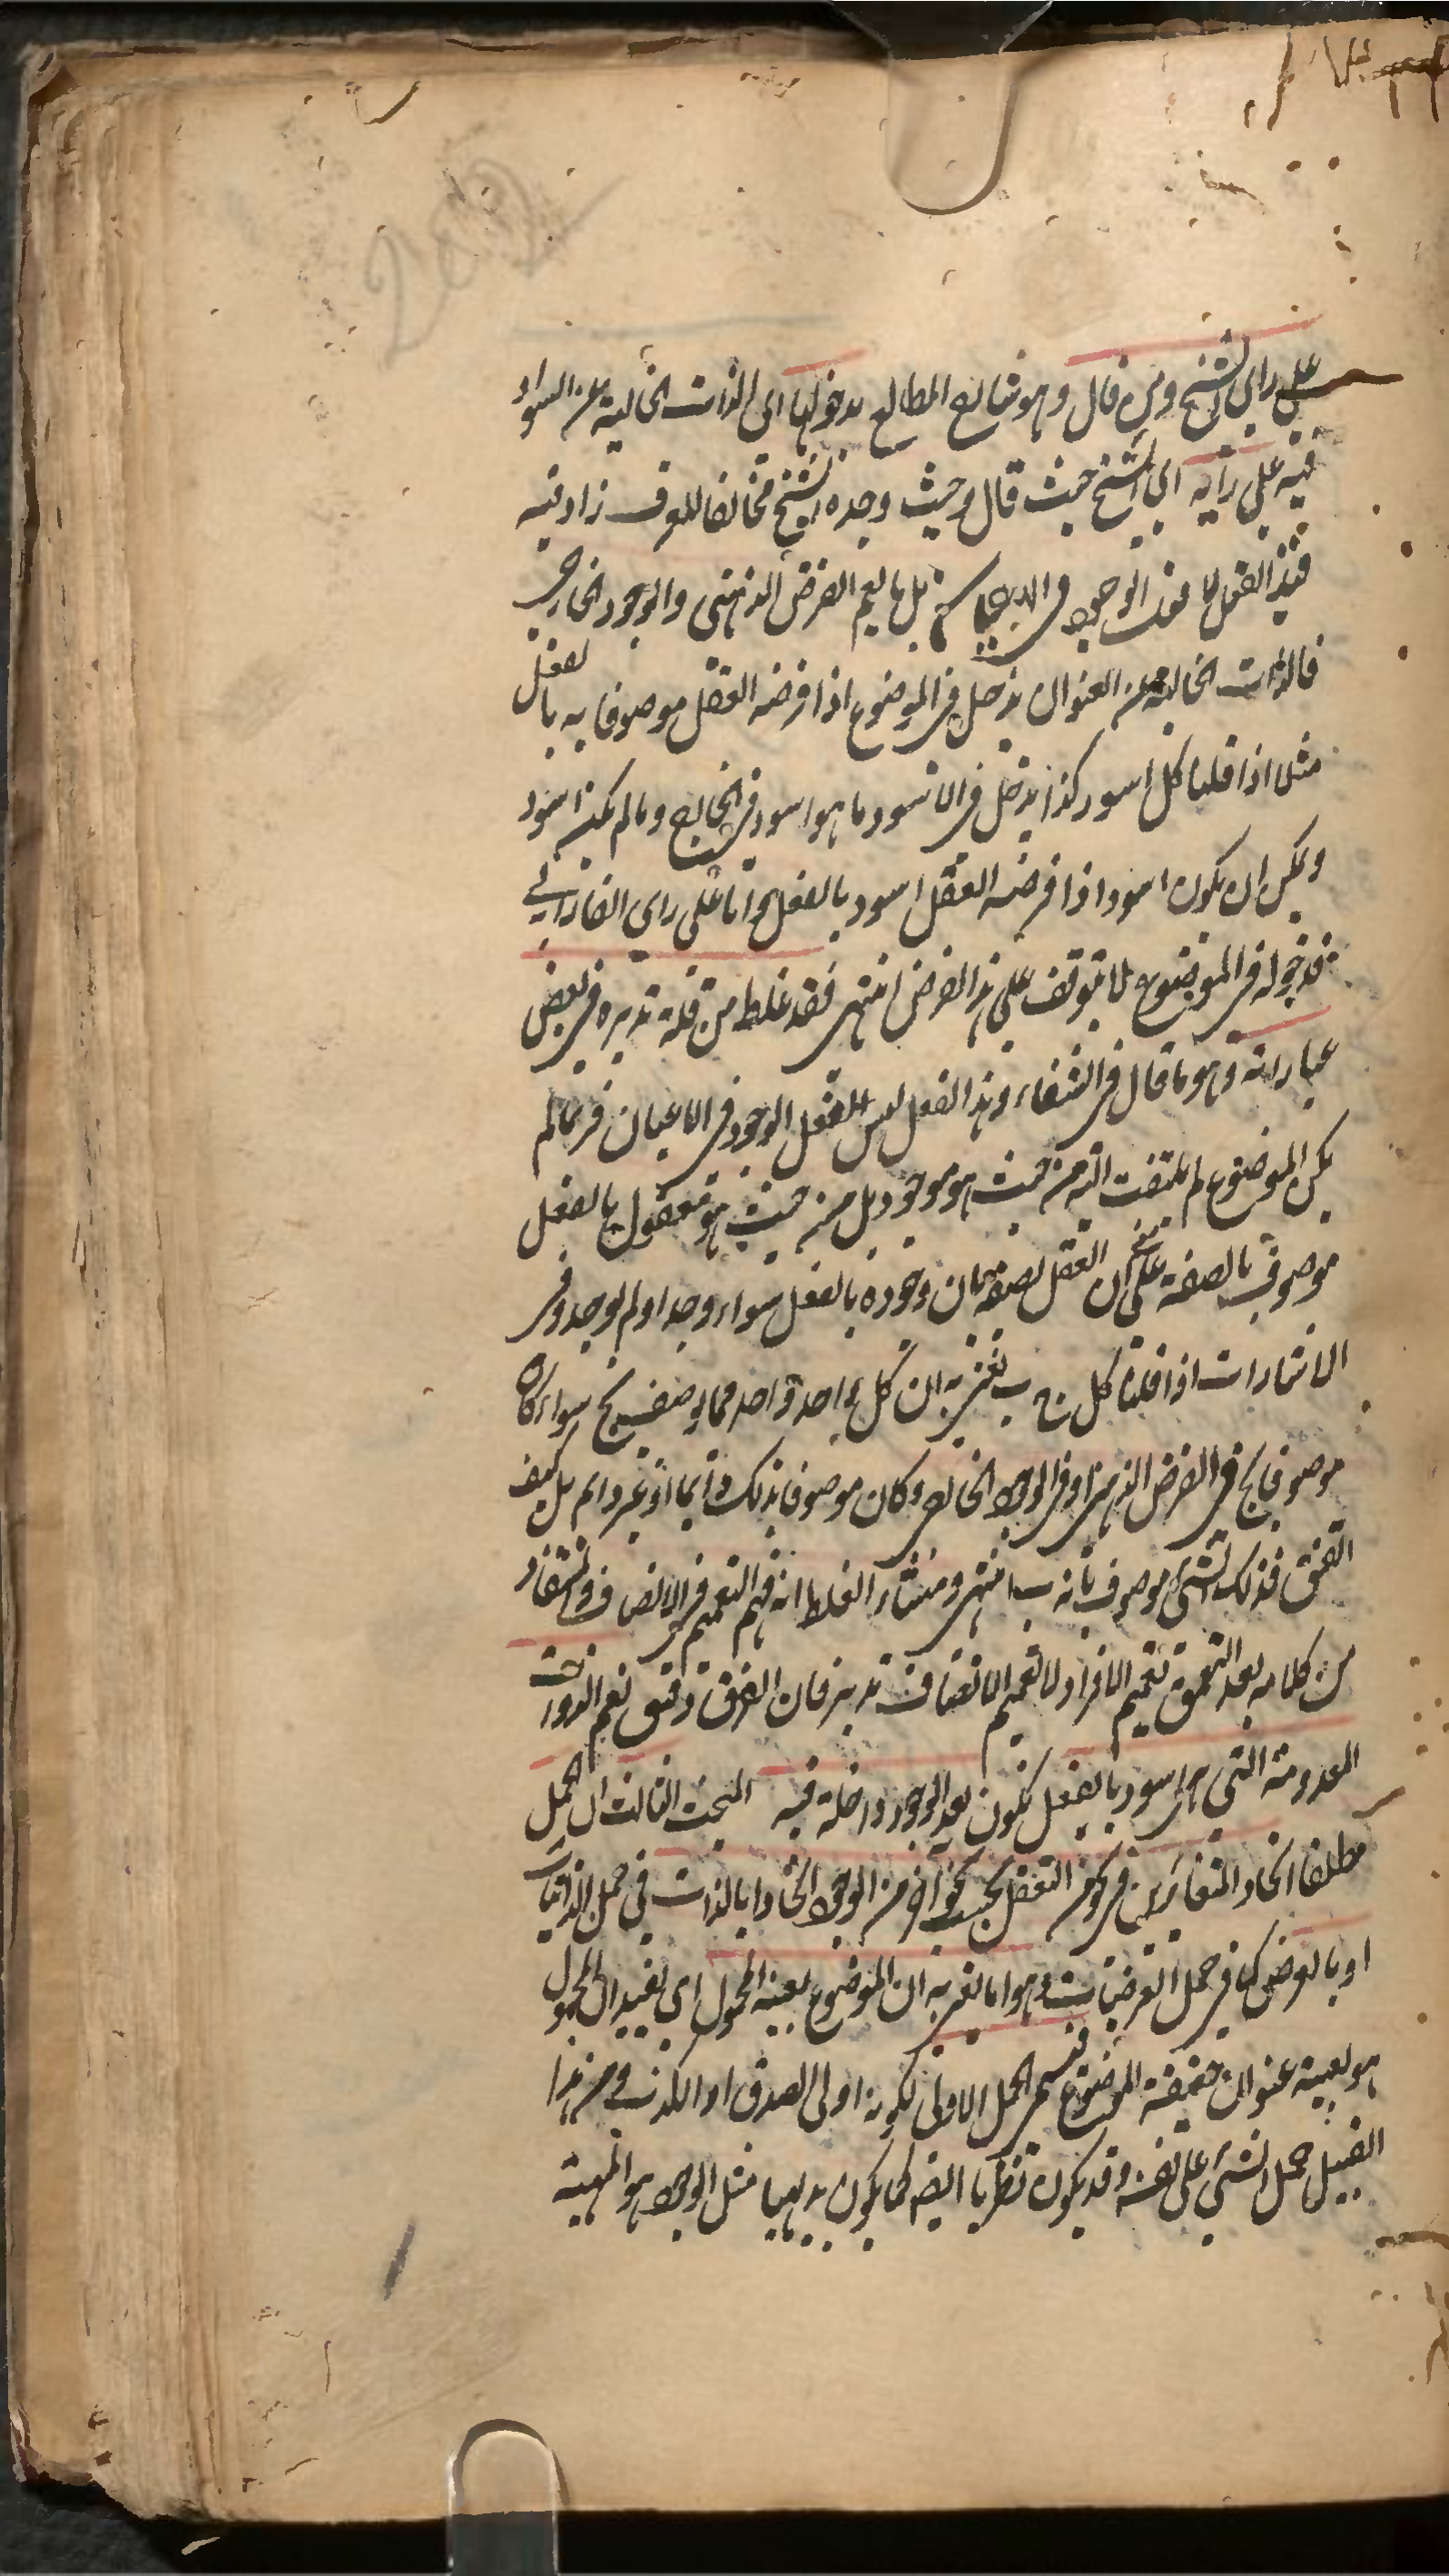 على راى الشيخ ومن قال وهو شارح المطالع بدخولها اى الذات الخالية عن السواد
فيه على رأيه اى الشيخ حيث قال وحيث وجده الشيخ مخالفا للعرف زاد فيه
قيد الفعل لا فعل الوجود فى الاعيان بل ما يعم الفرض الذهنى والوجود الخارجى
فالذات الخالية عن العنوان يدخل فى الموضوع اذا فرضه العقل موصوفا به بالفعل
مثلا اذا قلنا كل اسود كذا يدخل فى الاسود ما هو اسود فى الخارج وما لم يكن اسود
ويمكن ان يكون اسود اذا فرضه العقل اسود بالفعل واما على راى الفارابي
فدخوله فى الموضوع لا يتوقف على هذا الفرض انتهى فقد غلط من قلة تدبره فى بعض
عباراته وهو ما قال فى الشفاء وهذا الفعل ليس الفعل الوجود فى الاعيان فربما لم
يكن الموضوع لم يلتفت اليه من حيث هو موجود بل من حيث هو معقول بالفعل
موصوف بالصفة على ان العقل يصفه بان وجوده بالفعل سواء وجد او لم يوجد وفى
الاشارات اذا قلنا كل ج ب نعنى به ان كل واحد واحد مما يوصف بج سواء كان
موصوفا بج فى الفرض الذهنى او فى الوجود الخارجى وكان موصوفا بذلك دائما او غير دائم بل كيف
اتفق فذلك الشئ موصوف بانه ب انتهى ومنشاء الغلط انه فهم التعميم فى الاتصاف والمستفاد
من كلامه بعد التعمق تعميم الافراد لا تعميم الاتصاف تدبر فان الفرق دقيق نعم الذوات
المعدومة التى هى اسود بالفعل تكون بعد الوجود داخلة فيه المبحث الثالث ان الحمل
مطلقا اتحاد المتغايرين فى نحو من التعقل بحسب نحو آخر من الوجود اتحادا بالذات فى حمل الذاتيات
او بالعرض كما فى حمل العرضيات وهو اما يعنى به ان الموضوع بعينه المحمول اى يفيد ان المحمول
هو بعينه عنوان حقيقة الموضوع فيسمى الحمل الاولى لكونه اولى الصدق او الكذب ومن هذا
القبيل حمل الشئ على نفسه وقد يكون نظريا ايضا كما يكون بديهيا مثل الوجود هو المهية